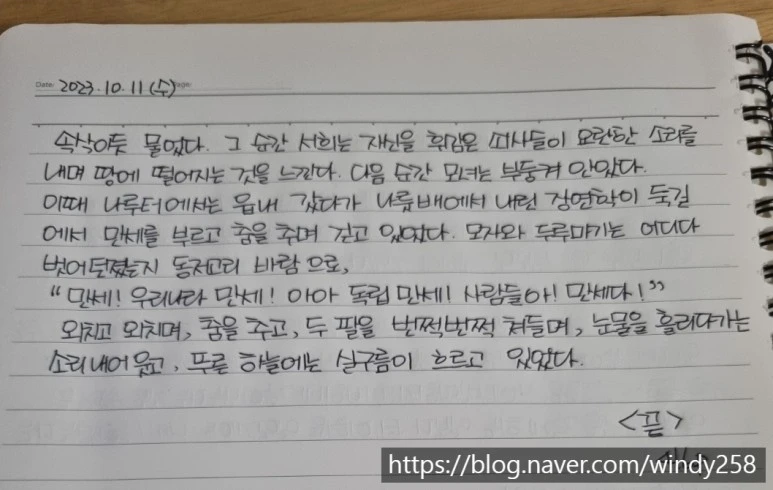 Date: 2023.10.11(수) Page:
속삭이듯 물었다. 그 순간 서희는 자신을 휘감은 쇠사슬이 요란한 소리를
내며 땅에 떨어지는 것을 느낀다. 다음 순간 모녀는 부둥켜 안았다.
이때 나루터에서는 읍내 갔다가 나룻배에서 내린 장연학이 둑길
에서 만세를 부르고 춤을 추며 걷고 있었다. 모자와 두루마기는 어디다
벗어던졌는지 동저고리 바람으로,
“만세! 우리나라 만세! 아아 독립 만세! 사람들아! 만세다!”
외치고 외치며, 춤을 추고, 두 팔을 번쩍번쩍 쳐들며, 눈물을 흘리다가는
소리내어 웃고, 푸른 하늘에는 실구름이 흐르고 있었다.
<끝>
https://blog.naver.com/windy258